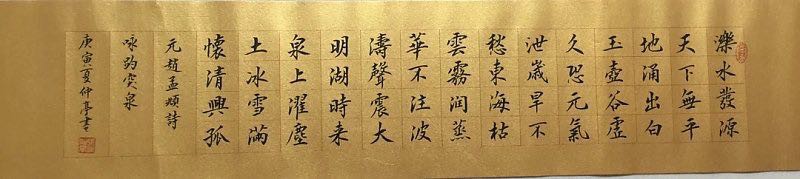 濼水發源
天下無平
地涌出白
玉壺谷虛
久恐元氣
泄歲旱不
愁東海枯
雲霧润蒸
華不注波
濤聲震大
明湖時来
泉上濯塵
土冰雪滿
懷清興孤
元趙孟頫詩
咏趵突泉
庚寅夏仲亭書